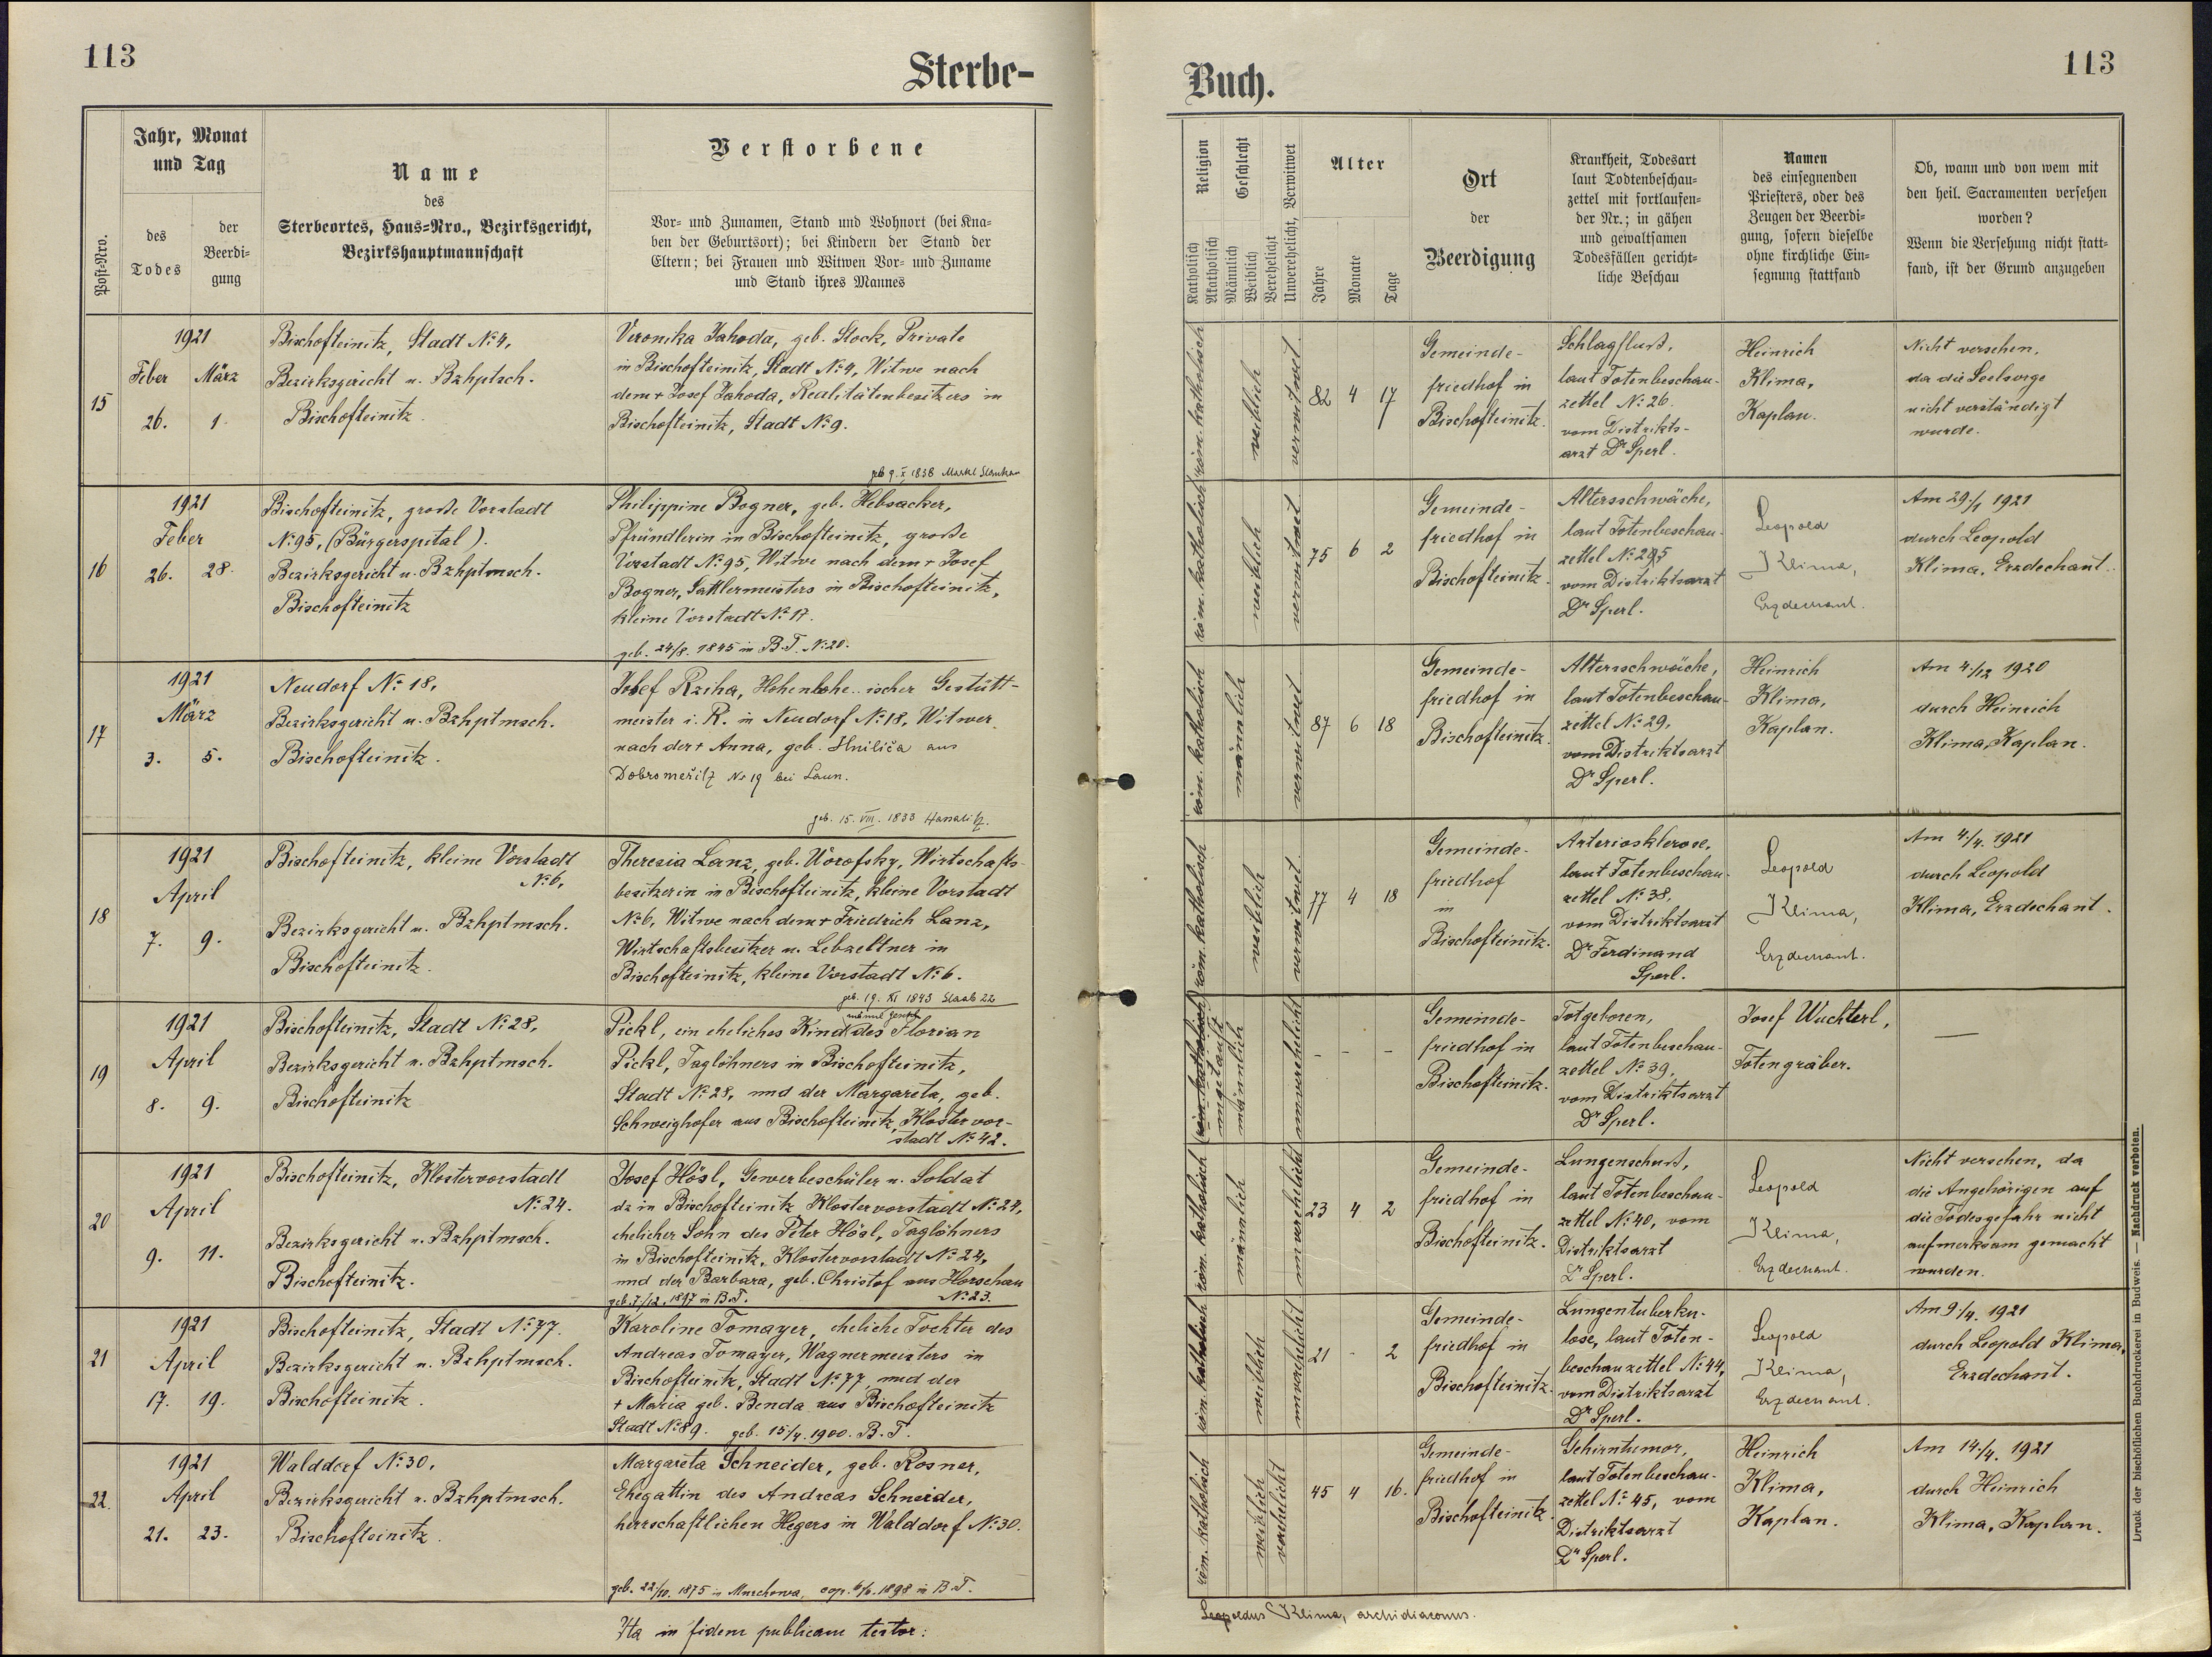 113
Sterbe-
Jahr, Monat
und Tag
Post-Nro.
des
Todes
der
Beerdi-
gung
Name
des
Sterbeortes, Haus-Nro., Bezirksgericht,
Bezirkshauptmannschaft
Verstorbene
Vor- und Zunamen, Stand und Wohnort (bei Kna-
ben der Geburtsort); bei Kindern der Stand der
Eltern; bei Frauen und Witwen Vor- und Zuname
und Stand ihres Mannes
15
1921
Feber März
26. 1.
Bischofteinitz, Stadt No 4,
Bezirksgericht u. Bzhptsch.
Bischofteinitz.
Veronika Jahoda, geb. Stock, Private
in Bischofteinitz, Stadt No 4, Witwe nach
dem + Josef Jahoda, Realitätenbesitzers in
Bischofteinitz, Stadt No 9.
geb 9. X 1838
16
1921
Feber
26. 28.
Bischofteinitz, große Vorstadt
No 95, (Bürgerspital).
Bezirksgericht u. Bzhptmsch.
Bischofteinitz
Philippine Bogner, geb. Hebsacker,
Pfründlerin in Bischofteinitz, große
Vorstadt No 95, Witwe nach dem + Josef
Bogner, Sattlermeisters in Bischofteinitz,
kleine Vorstadt No 17.
geb. 24/8. 1845 in B.T. No 20.
17
1921
März
3. 5.
Neudorf No 18,
Bezirksgericht u. Bzhptmsch.
Bischofteinitz.
Josef Rziha, Hohenlohe..ischer Gestütt-
meister i. R. in Neudorf No 18, Witwer
nach der + Anna, geb. Hnilića aus
Dobroměřitz Nr 19 bei Laun.
geb. 15. VIII. 1833
18
1921
April
7. 9.
Bischofteinitz, kleine Vorstadt
No 6,
Bezirksgericht u. Bzhptmsch.
Bischofteinitz.
Theresia Lanz, geb. Worofsky, Wirtschafts-
besitzerin in Bischofteinitz, kleine Vorstadt
No 6, Witwe nach dem + Friedrich Lanz,
Wirtschaftsbesitzer u. Lebzeltner in
Bischofteinitz, kleine Vorstadt No 6.
geb. 19. XI 1843 Staab 22
19
1921
April
8. 9.
Bischofteinitz, Stadt No 28,
Bezirksgericht u. Bzhptmsch.
Bischofteinitz
männl. Geschl.
Pickl, ein eheliches Kind des Florian
Pickl, Taglöhners in Bischofteinitz,
Stadt No 28, und der Margareta, geb.
Schweighofer aus Bischofteinitz, Klostervor-
stadt No 42.
20
1921
April
9. 11.
Bischofteinitz, Klostervorstadt
No 24.
Bezirksgericht u. Bzhptmsch.
Bischofteinitz.
Josef Hösl, Gewerbeschüler u. Soldat
dz in Bischofteinitz Klostervorstadt No 24,
ehelicher Sohn des Peter Hösl, Taglöhners
in Bischofteinitz, Klostervorstadt No 24,
und der Barbara, geb. Christof aus Horschau
No 23.
geb. 7/12. 1897 in B.T.
21
1921
April
17. 19.
Bischofteinitz, Stadt No 77.
Bezirksgericht u. Bzhptmsch.
Bischofteinitz.
Karoline Tomayer, eheliche Tochter des
Andreas Tomayer, Wagnermeisters in
Bischofteinitz, Stadt No 77, und der
+ Maria geb. Benda aus Bischofteinitz
Stadt No 89. geb. 15/4. 1900. B.T.
22.
1921
April
21. 23.
Walddorf No 30,
Bezirksgericht u. Bzhptmsch.
Bischofteinitz.
Margareta Schneider, geb. Rosner,
Ehegattin des Andreas Schneider,
herrschaftlichen Hegers in Walddorf No 30.
geb. 22/10. 1875 in Murchowa, cop. 6/6. 1898 in B.T.
Ita in fidem publicam testor:
113
Buch.
Religion
Katholisch
Akatholisch
Geschlecht
Männlich
Weiblich
Verehelicht
Unverehelicht, Verwitwet
Alter
Jahre
Monate
Tage
Ort
der
Beerdigung
Krankheit, Todesart
laut Todtenbeschau-
zettel mit fortlaufen-
der Nr.; in gähen
und gewaltsamen
Todesfällen gericht-
liche Beschau
Namen
des einsegnenden
Priesters, oder des
Zeugen der Beerdi-
gung, sofern dieselbe
ohne kirchliche Ein-
segnung stattfand
Ob, wann und von wem mit
den heil. Sacramenten versehen
worden?
Wenn die Versehung nicht statt-
fand, ist der Grund anzugeben
röm. katholisch
weiblich
verwitwet
82 4 17
Gemeinde-
friedhof in
Bischofteinitz.
Schlagfluß,
laut Totenbeschau-
zettel No 26.
vom Distrikts-
arzt Dr Sperl.
Heinrich
Klima,
Kaplan.
Nicht versehen,
da die Seelsorge
nicht verständigt
wurde.
röm. katholisch
weiblich
verwitwet
75 6 2
Gemeinde-
friedhof in
Bischofteinitz.
Altersschwäche,
laut Totenbeschau-
zettel No 25
vom Distriktsarzt
Dr Sperl.
Leopold
Klima,
Erzdechant.
Am 29./1 1921
durch Leopold
Klima, Erzdechant.
röm. katholisch
männlich
verwitwet
87 6 18
Gemeinde-
friedhof in
Bischofteinitz.
Altersschwäche,
laut Totenbeschau-
zettel No 29,
vom Distriktsarzt
Dr Sperl.
Heinrich
Klima,
Kaplan.
Am 4./12 1920
durch Heinrich
Klima, Kaplan.
röm. katholisch
weiblich
verwitwet
77 4 18
Gemeinde-
friedhof
in
Bischofteinitz.
Arteriosklerose,
laut Totenbeschau-
zettel No 38,
vom Distriktsarzt
Dr Ferdinand
Sperl.
Leopold
Klima,
Erzdechant.
Am 4./4. 1921
durch Leopold
Klima, Erzdechant.
röm. katholisch
ungetauft
männlich
unverehelicht
- - -
Gemeinde-
friedhof in
Bischofteinitz.
Totgeboren,
laut Totenbeschau-
zettel No 39,
vom Distriktsarzt
Dr Sperl.
Josef Wuchterl,
Totengräber.
—
röm. katholisch
männlich
unverehelicht
23 4 2
Gemeinde-
friedhof in
Bischofteinitz.
Lungenschuß,
laut Totenbeschau-
zettel No 40, vom
Distriktsarzt
Dr Sperl.
Leopold
Klima,
Erzdechant.
Nicht versehen, da
die Angehörigen auf
die Todesgefahr nicht
aufmerksam gemacht
wurden.
röm. katholisch
weiblich
unverehelicht
21 - 2
Gemeinde-
friedhof in
Bischofteinitz.
Lungentuberku-
lose, laut Toten-
beschauzettel No 44,
vom Distriktsarzt
Dr Sperl.
Leopold
Klima,
Erzdechant.
Am 9./4. 1921
durch Leopold Klima,
Erzdechant.
röm. katholisch
weiblich
verehelicht
45 4 16.
Gemeinde-
friedhof in
Bischofteinitz
Gehirntumor,
laut Totenbeschau-
zettel No 45, vom
Distriktsarzt
Dr Sperl.
Heinrich
Klima,
Kaplan.
Am 14./4. 1921
durch Heinrich
Klima, Kaplan.
Leopoldus Klima, archidiaconus.
Druck der bischöflichen Buchdruckerei in Budweis. — Nachdruck verboten.